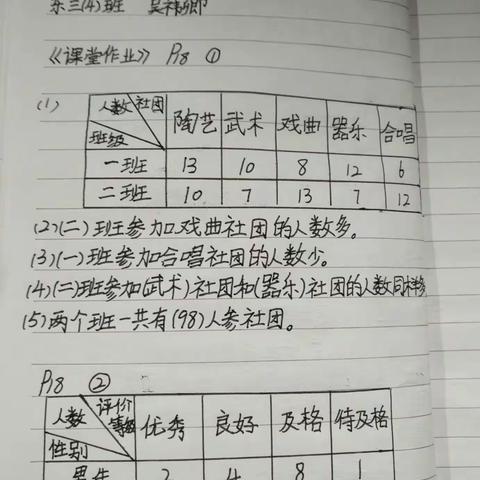 东三(4)班 吴祎卿
《课堂作业》 P18 ①
(1) 人数 社团 班级 陶艺 武术 戏曲 器乐 合唱
一班 13 10 8 12 6
二班 10 7 13 7 12
(2)(二)班参加戏曲社团的人数多。
(3)(一)班参加合唱社团的人数少。
(4)(二)班参加(武术)社团和(器乐)社团的人数同样多
(5)两个班一共有(98)人参社团。
P18 ②
人数 评价等级 性别 优秀 良好 及格 待及格
男生 2 4 8 1